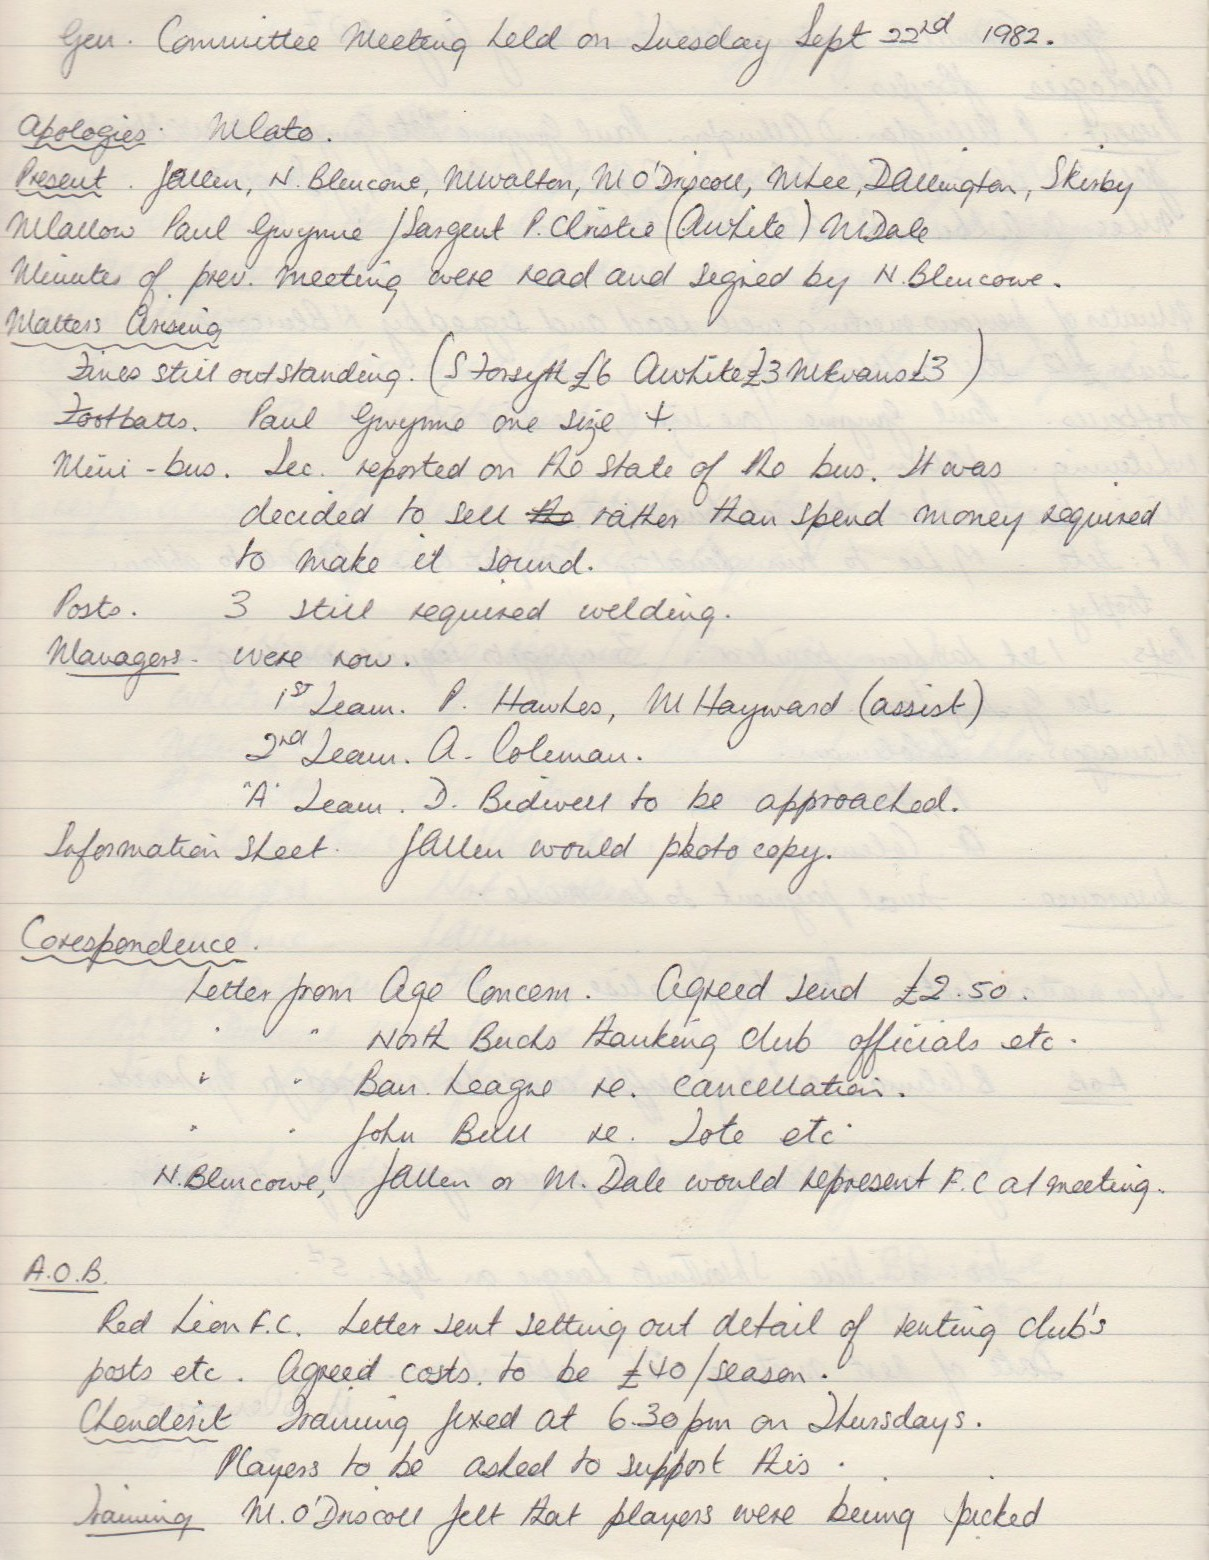 Gen. Committee Meeting held on Tuesday Sept 22nd 1982.
Apologies. M Lato.
Present. J Allen, N. Blencowe, M Walton, M O'Driscoll, M Lee, D Allington, S Kirby
M Lallow Paul Gwynne J Sargent P. Christie (A White) M Dale
Minutes of prev. meeting were read and signed by N. Blencowe.
Matters Arising
Fines still outstanding. (S Forsyth £6 A White £3 M Evans £3)
Footballs. Paul Gwynne one size 4.
Mini-bus. Sec. reported on the state of the bus. It was
decided to sell the rather than spend money required
to make it sound.
Posts. 3 still required welding.
Managers. were now.
1st Team. P. Hawkes, M Hayward (assist)
2nd Team. A. Coleman.
"A" Team. D. Bidwell to be approached.
Information Sheet. J Allen would photo copy.
Corespondence.
Letter from Age Concern. Agreed send £2.50.
" " North Bucks thanking club officials etc.
" " Ban. League re. cancellation.
" " John Bull re. Tote etc.
N. Blencowe, J Allen or M. Dale would represent F.C at meeting.
A.O.B.
Red Lion F.C. Letter sent setting out detail of renting club's
posts etc. Agreed costs. to be £40/season.
Chenderit Training fixed at 6.30pm on Thursdays.
Players to be asked to support this.
Training M. O'Driscoll felt that players were being picked